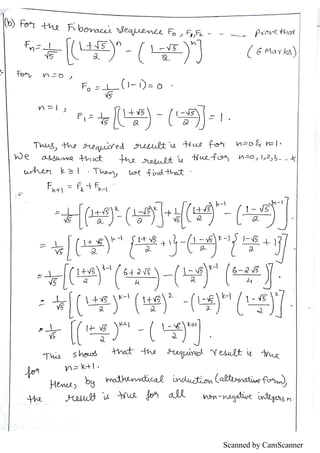 (b) For the Fibonacci Sequence F₀, F₁, F₂ - - - - prove that
Fₙ = 1/√5 [((1+√5)/2)ⁿ - ((1-√5)/2)ⁿ] (6 Marks)
For n=0,
F₀ = 1/√5 (1-1) = 0.
n=1,
F₁ = 1/√5 [((1+√5)/2) - ((1-√5)/2)] = 1.
Thus, the required result is true for n=0 & n=1.
We assume that the result is true for n=0,1,2,3...k
when k≥1. Then, we find that
Fₖ₊₁ = Fₖ + Fₖ₋₁
= 1/√5 [((1+√5)/2)ᵏ - ((1-√5)/2)ᵏ] + 1/√5 [((1+√5)/2)ᵏ⁻¹ - ((1-√5)/2)ᵏ⁻¹]
= 1/√5 [((1+√5)/2)ᵏ⁻¹ {(1+√5)/2 + 1} - ((1-√5)/2)ᵏ⁻¹ {(1-√5)/2 + 1}]
= 1/√5 [((1+√5)/2)ᵏ⁻¹ ((6+2√5)/4) - ((1-√5)/2)ᵏ⁻¹ ((6-2√5)/4)].
= 1/√5 [((1+√5)/2)ᵏ⁻¹ ((1+√5)/2)² - ((1-√5)/2)ᵏ⁻¹ ((1-√5)/2)²].
= 1/√5 [((1+√5)/2)ᵏ⁺¹ - ((1-√5)/2)ᵏ⁺¹].
This shows that the required result is true
for n=k+1.
Hence, by mathematical induction (alternative form),
the result is true for all non-negative integers n.
Scanned by CamScanner